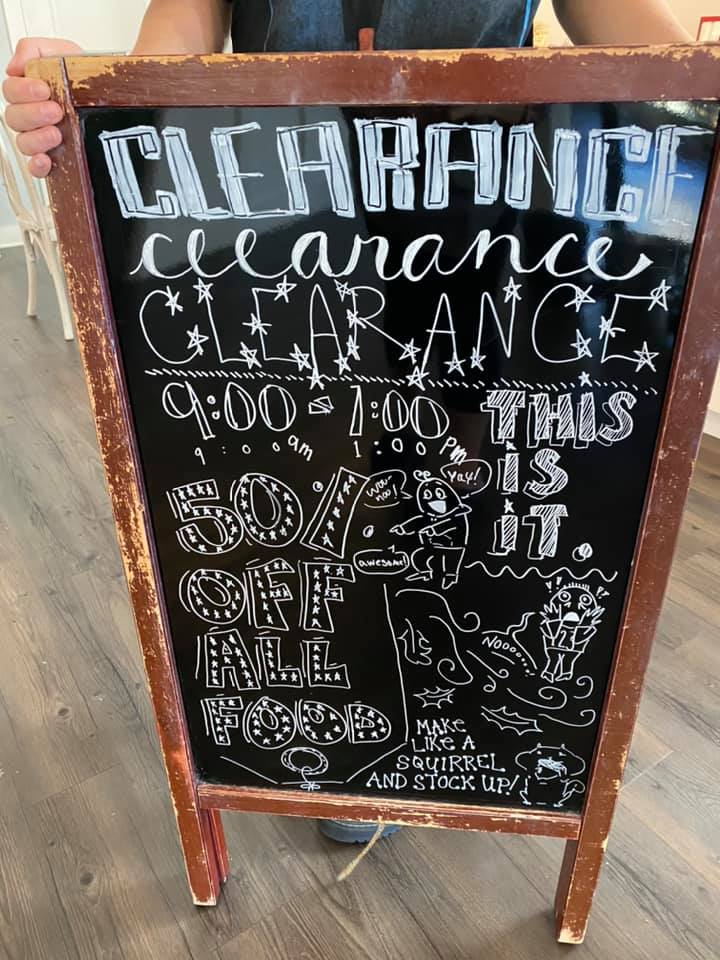 CLEARANCE
clearance
CLEARANCE
9:00 - 1:00
9:00 am 1:00 pm
THIS
IS
IT.
50%
OFF
ALL
FOOD
woo
hoo!
Yay!
awesome!
!! !!
NOOOOOO....!
MAKE
LIKE A
SQUIRREL
AND STOCK UP!